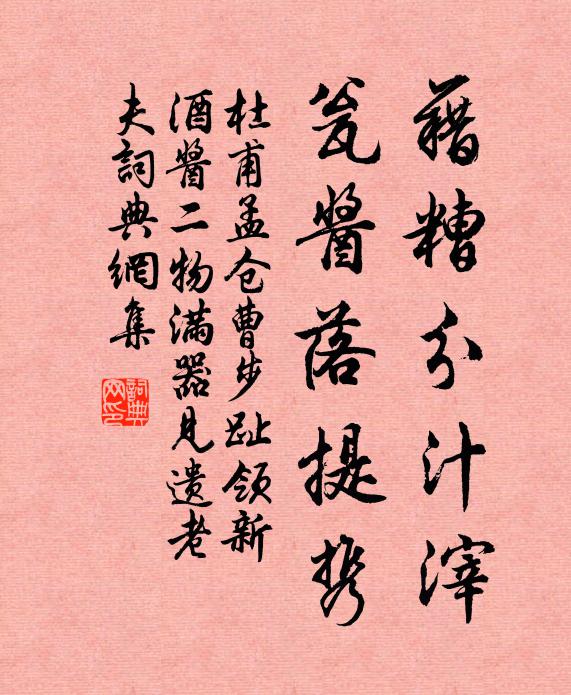 藉糟分汁滓
瓮醬落提携
杜甫孟仓曹步趾领新
酒醬二物满器見遗老
夫詞典網集
詞典
网印